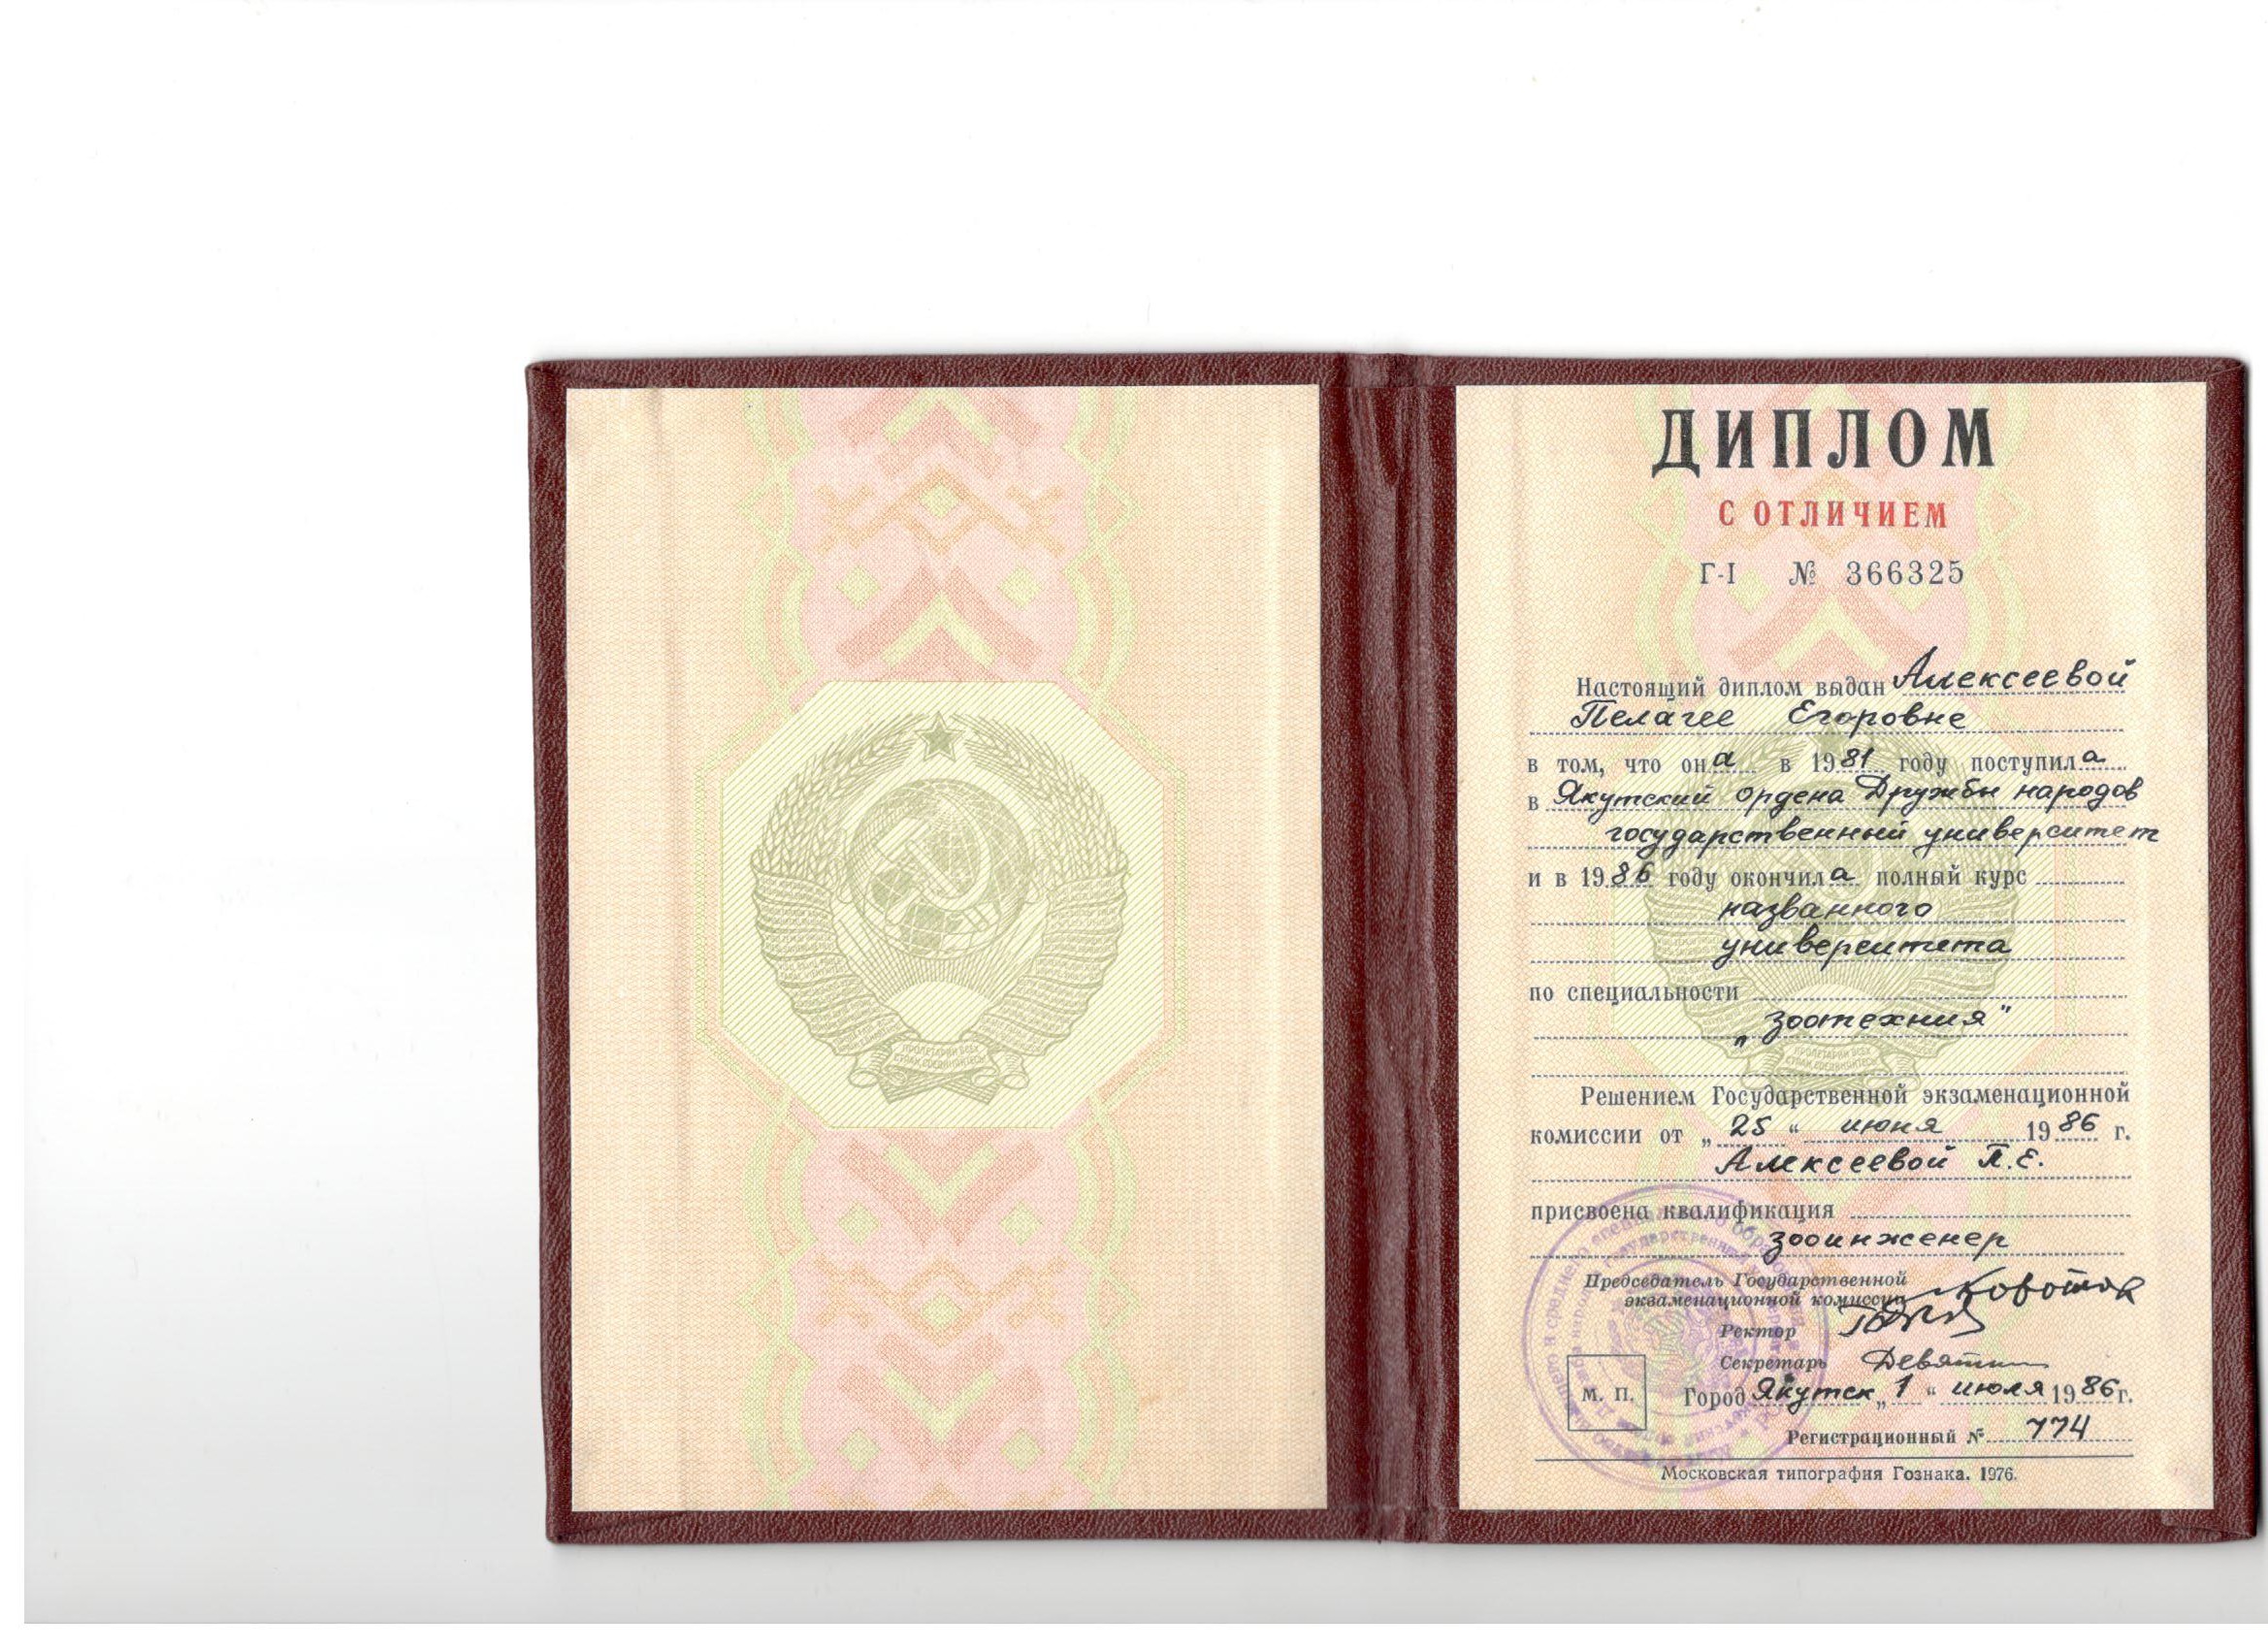 ДИПЛОМ
С ОТЛИЧИЕМ
Г-I № 366325
Настоящий диплом выдан Алексеевой
Пелагее Егоровне
в том, что она в 1981 году поступила
в Якутский ордена Дружбы народов
государственный университет
и в 1986 году окончила полный курс
названного
университета
по специальности
„зоотехния"
Решением Государственной экзаменационной
комиссии от „25" июня 1986 г.
Алексеевой П.Е.
присвоена квалификация
зооинженер
Председатель Государственной
экзаменационной комиссии
Ректор
Секретарь
М. П. Город Якутск „1" июля 1986 г.
Регистрационный № 774
Московская типография Гознака. 1976.
ПРОЛЕТАРИИ ВСЕХ
СТРАН, СОЕДИНЯЙТЕСЬ!